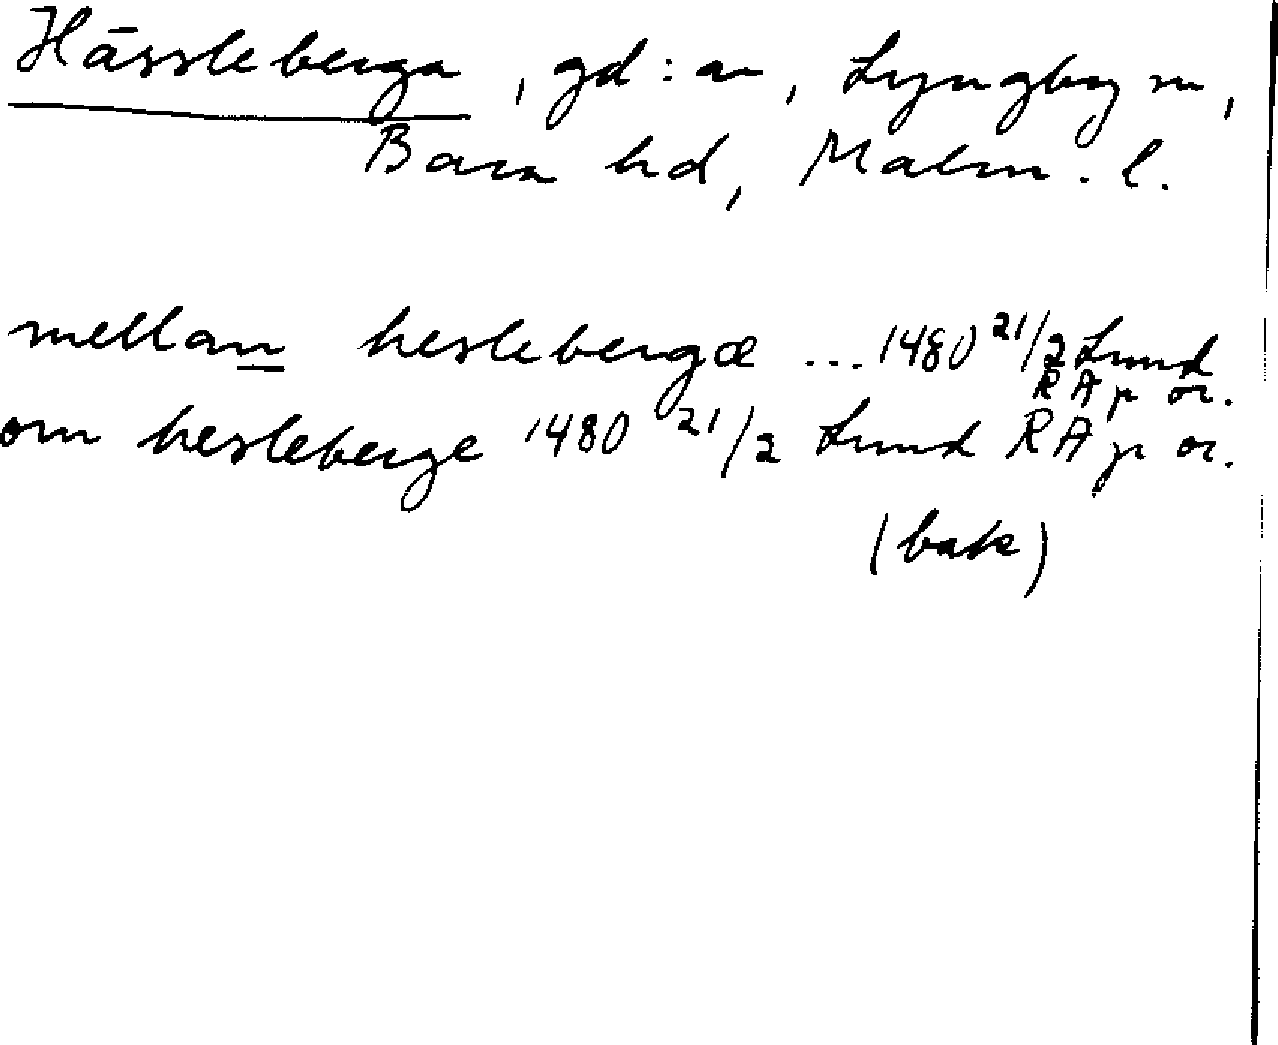 Hässleberga, gd:ar, Lyngby sn,
Bara hd, Malm. l.
mellan heslebergæ ... 1480 21/2 Lund
RA p or.
om hesleberge 1480 21/2 Lund RA p or.
(bak)